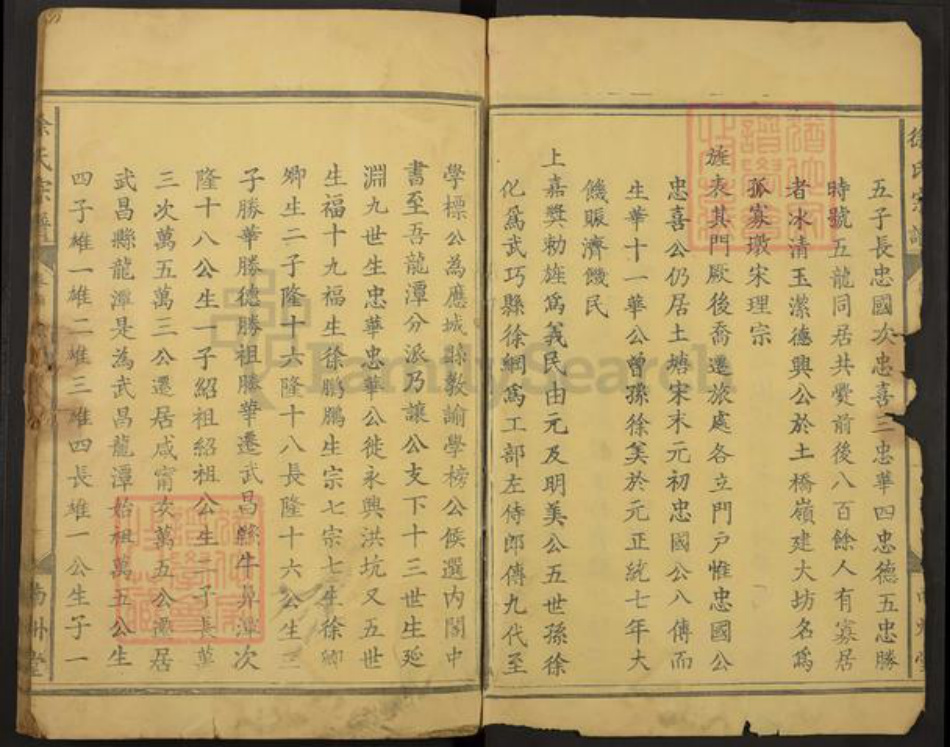 五子長忠國次忠喜三忠華四忠德五忠勝
時號五龍同居共爨前後八百餘人有寡居
者冰清玉潔德興公於土橋嶺建大坊名為
孤寡墩宋理宗
旌表其門厥後喬遷旅處各立門戶惟忠國公
忠喜公仍居土塘宋末元初忠國公八傳而
生華十一華公曾孫徐美於元正統七年大
饑賑濟饑民
上嘉獎勅旌為義民由元及明美公五世孫徐
化為武巧縣徐綱為工部左侍郎傳九代至
學標公為應城縣教諭學榜公候選內閣中
書至吾龍潭分派乃讓公支下十三世生延
淵九世生忠華忠華公徙永興洪坑又五世
生福十九福生徐鵬鵬生宗七宗七生徐卿
卿生二子隆十六隆十八長隆十六公生三
子勝華勝德勝祖勝華遷武昌縣牛鼻潭次
隆十八公生一子紹祖紹祖公生三子長萬
三次萬五萬三公遷居咸甯次萬五公遷居
武昌縣龍潭是為武昌龍潭始祖萬五公生
四子雄一雄二雄三雄四長雄一公生子一
徐氏宗譜
南州堂
FamilySearch